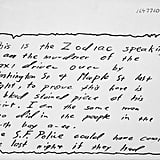 his is the Zodiac speaking
am the murderer of the
axi driver over by
shington St & Maple St last
ght, to prove this here is
blood stained piece of his
irt. I am the same man
o did in the people in the
th bay area.
S.F. Police could have
last night if they had